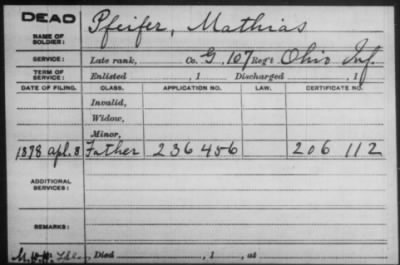 DEAD
NAME OF SOLDIER: Pfeifer, Mathias
SERVICE: Late rank, Co. G, 107 Reg't Ohio Inf.
TERM OF SERVICE: Enlisted , 1 Discharged , 1
DATE OF FILING. CLASS. APPLICATION NO. LAW. CERTIFICATE NO.
Invalid,
Widow,
Minor,
1878 Apl. 8 Father 236456 206112
ADDITIONAL SERVICES:
REMARKS:
Died , 1 , at